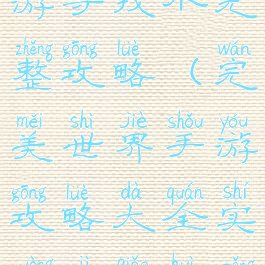 zhěng gōng lüè wán
整攻略（完
měi shì jiè shǒu yóu
美世界手游
gōng lüè dà quán shí
攻略大全实